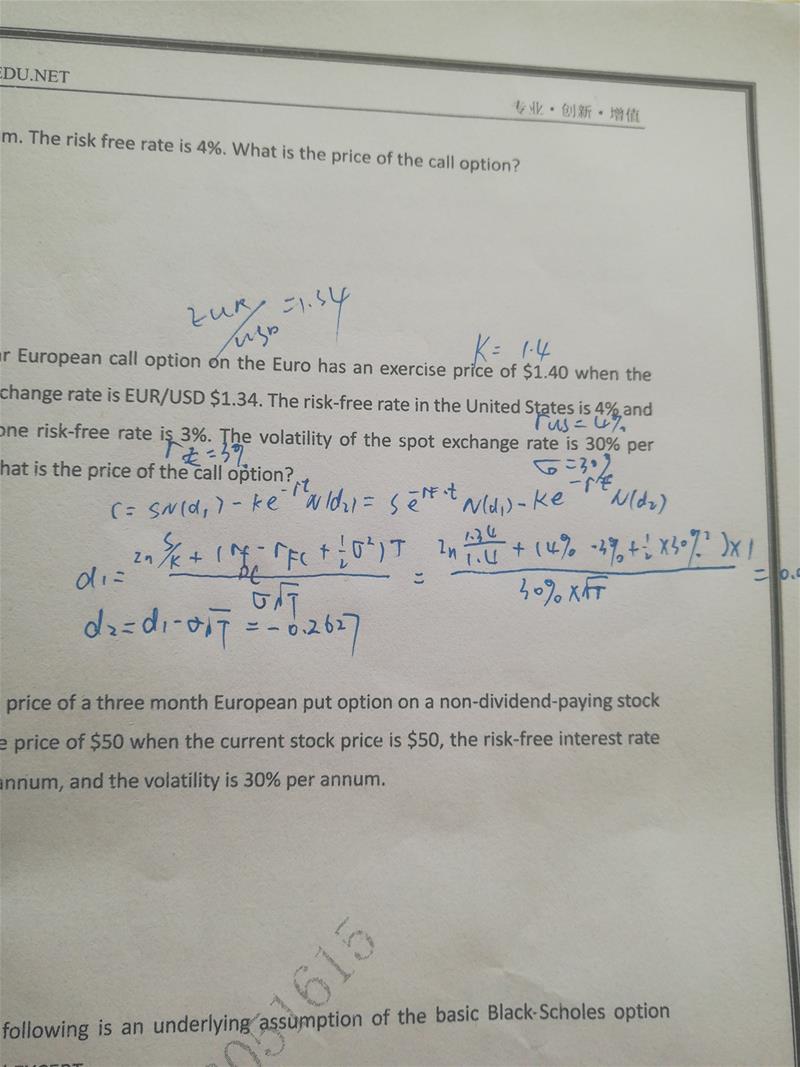 EDU.NET
专业·创新·增值
m. The risk free rate is 4%. What is the price of the call option?
EUR/USD =1.34
K= 1.4
r European call option on the Euro has an exercise price of $1.40 when the
change rate is EUR/USD $1.34. The risk-free rate in the United States is 4% and
rus=4%
one risk-free rate is 3%. The volatility of the spot exchange rate is 30% per
r€=3% σ=30%
hat is the price of the call option?
C= SN(d₁)-ke^-rt N(d₂)= Se^-rF·t N(d₁)-Ke^-rt N(d₂)
d₁= (ln S/K + (rf - rFC + ½σ²)T) / (σ√T) = (ln 1.34/1.4 + (4% -3%+½×30%²)×1) / (30%×√T) = 0.0
d₂=d₁-σ√T =-0.2627
price of a three month European put option on a non-dividend-paying stock
e price of $50 when the current stock price is $50, the risk-free interest rate
annum, and the volatility is 30% per annum.
051615
following is an underlying assumption of the basic Black-Scholes option